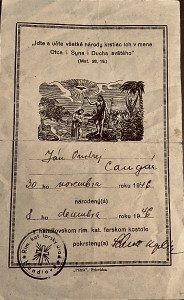 „Iďte a učte všetké národy krstiac ich v mene
Otca i Syna i Ducha svätého"
(Mat. 28, 19.)
Ján Ondrej
30 ho novembra roku 1946
narodený(á)
8 ho decembra roku 1946
v handlovskom rím. kat. farskom kostole
pokrstený(á)